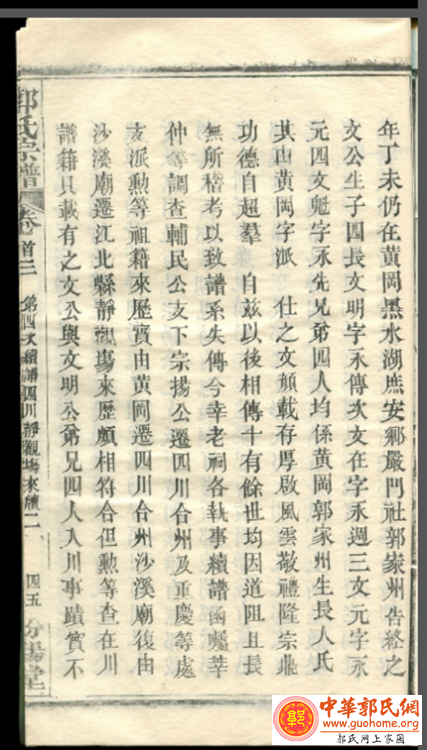 年丁未仍在黄岡黑水湖庶安鄉嚴門社郭家州告終之
文公生子四長文明字永傳次文在字永週三文元字永
元四文魁字永先兄弟四人均係黄岡郭家州生長人氏
其由黄岡字派 仕之文頗載存厚啟風雲敬禮隆宗鼎
功德自超羣 自兹以後相傳十有餘世均因道阻且長
無所稽考以致譜系失傳今幸老祠各執事續譜函囑莘
仲等調查輔民公支下宗揚公遷四川合州及重慶等處
支派勲等祖籍來歷實由黄岡遷四川合州沙溪廟復由
沙溪廟遷江北縣靜觀塲來歷頗相符合但勲等查在川
譜籍只載有之文公與文明公弟兄四人入川事蹟實不
郭氏宗譜 卷首三 第四次續譜四川靜觀塲來續二 四五 汾陽堂
中華郭氏網
www.guohome.org
郭氏网上家园